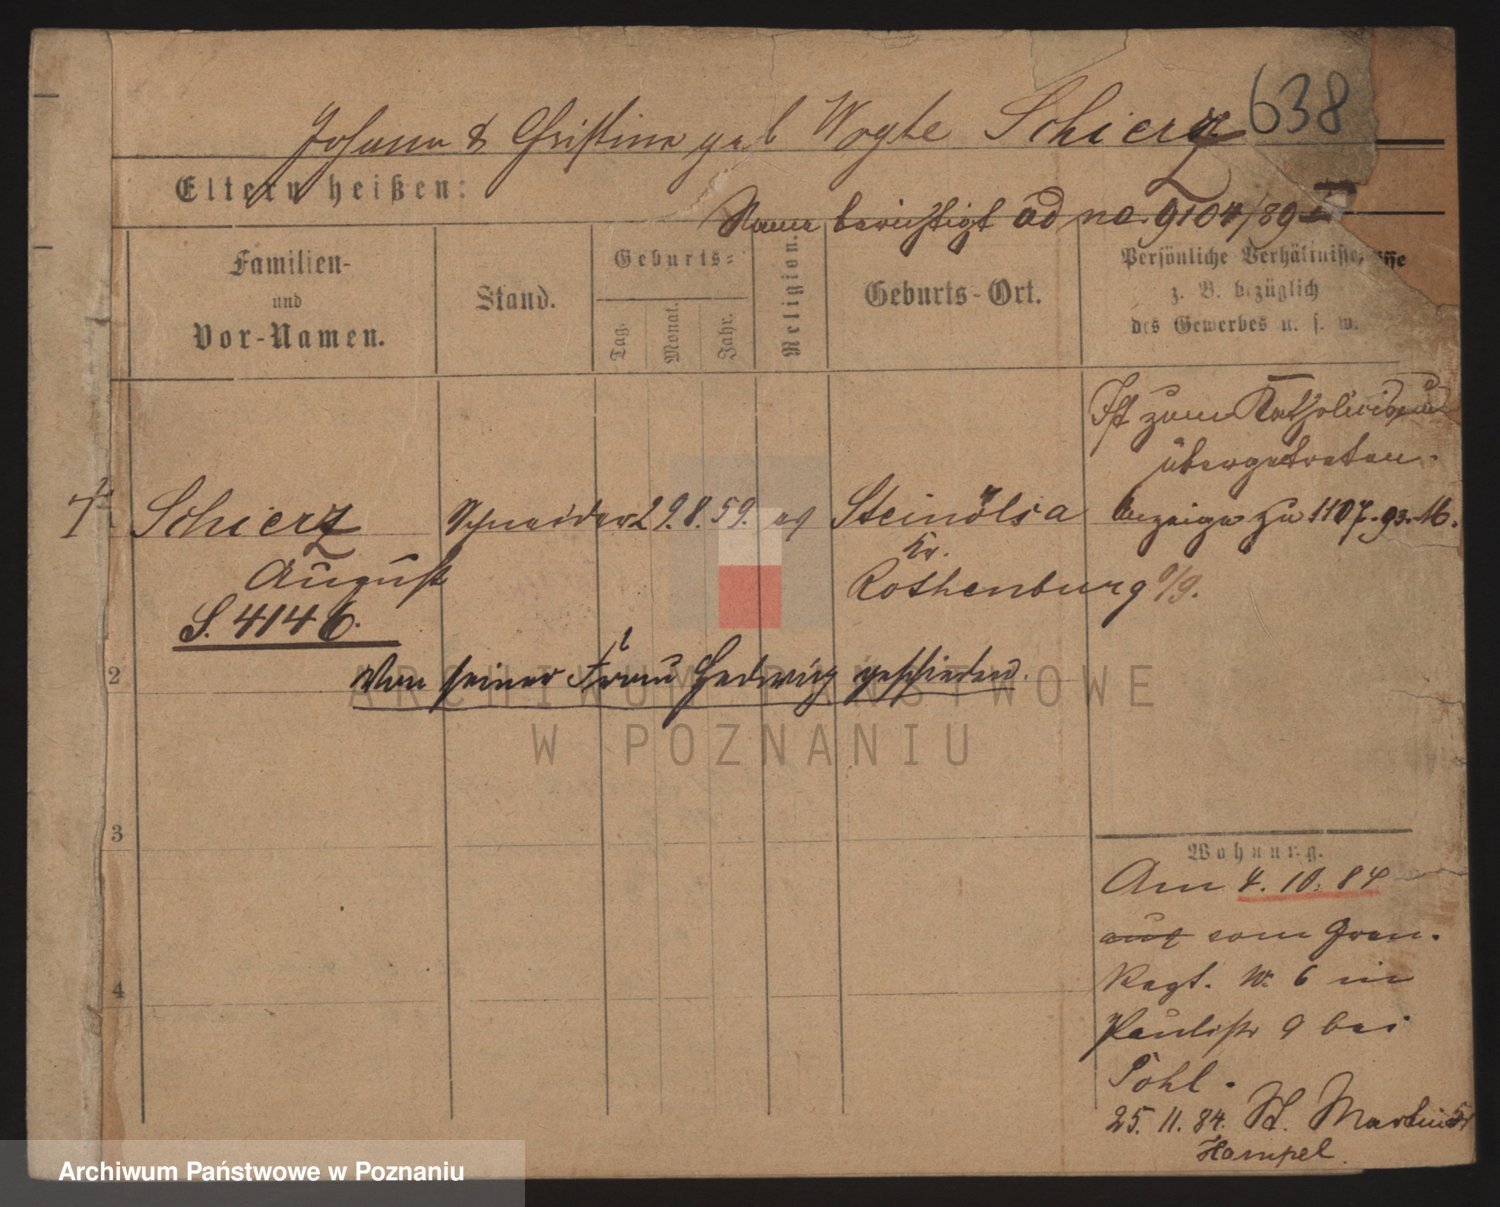 638
Johann & Christine geb Wogte Schierz
Eltern heißen:
Name berichtigt ad no. 9104/89
Familien-
und
Vor-Namen.
Stand.
Geburts-
Tag.
Monat.
Jahr.
Religion.
Geburts-Ort.
Persönliche Verhältnisse
z. B. bezüglich
des Gewerbes u. s. w.
Ist zum Katholicismus
übergetreten.
Anzeige zu 1107.93.M.
1
Schierz
August
S. 4146.
Schneider
29. 8. 59.
ev
Steinölsa
Kr.
Rothenburg o/g.
2
Von seiner Frau Hedwig geschieden.
3
4
Wohnung.
Am 4. 10. 84
auf vom Gren.
Regt. Nr. 6 in
Paulistr 9 bei
Pohl.
25. 11. 84. St. Martin 51
Hampel.
ARCHIWUM PAŃSTWOWE
W POZNANIU
Archiwum Państwowe w Poznaniu